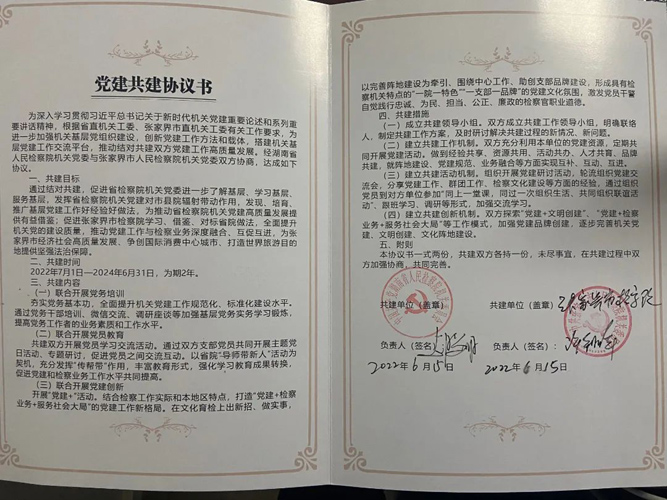 党建共建协议书
为深入学习贯彻习近平总书记关于新时代机关党建重要论述和系列重
要讲话精神，根据省直机关工委、张家界市直机关工委有关工作要求，为
进一步加强机关基层党组织建设，创新党建工作方法和载体，搭建机关基
层党建工作交流平台，推动结对共建双方党建工作高质量发展。经湖南省
人民检察院机关党委与张家界市人民检察院机关党委双方协商，达成如下
协议。
一、共建目标
通过结对共建，促进省检察院机关党委进一步了解基层、学习基层、
服务基层，发挥省检察院机关党建对市县院辐射带动作用，发现、培育、
推广基层党建工作好经验好做法，为推动省检察院机关党建高质量发展提
供有益借鉴；促进张家界市检察院学习、借鉴、对标省院做法，全面提升
机关党的建设质量，推动党建工作与检察业务深度融合、互促互进，为张
家界市经济社会高质量发展、争创国际消费中心城市，打造世界旅游目的
地提供坚强法治保障。
二、共建时间
2022年7月1日—2024年6月31日，为期2年。
三、共建内容
（一）联合开展党务培训
夯实党务基本功，全面提升机关党建工作规范化、标准化建设水平。
通过党务干部培训、微信交流、调研座谈等加强基层党务实务学习锻炼，
提高党务工作者的业务素质和工作水平。
（二）联合开展党员教育
共建双方开展党员学习交流活动。通过双方支部党员共同开展主题党
日活动、专题研讨，促进党员之间交流互动。以省院“导师带新人”活动为
契机，充分发挥“传帮带”作用，丰富教育形式，强化学习教育成果转换，
促进党建和检察业务工作水平共同提高。
（三）联合开展党建创新
开展“党建+”活动。结合检察工作实际和本地区特点，打造“党建+检察
业务+服务社会大局”的党建工作新格局。在文化育检上出新招、做实事，
以完善阵地建设为牵引、围绕中心工作、助创支部品牌建设，形成具有检
察机关特点的“一院一特色”“一支部一品牌”的党建文化氛围，激发党员干警
自觉践行忠诚、为民、担当、公正、廉政的检察官职业道德。
四、共建措施
（一）成立共建领导小组。双方成立共建工作领导小组，明确联络
人，制定共建工作方案，及时研讨解决共建过程的新情况、新问题。
（二）建立共建工作机制。双方充分利用本单位的党建资源，定期共
同开展党建活动，做到经验共享、资源共用、活动共办、人才共育、品牌
共建，就阵地建设、党建规范、业务融合等方面实现互补、互动、互进。
（三）建立共建活动机制。组织开展党建研讨活动，轮流组织党建交
流会，分享党建工作、群团工作、检察文化建设等方面的经验，通过组织
党员到对方单位参加“同上一堂课，同过一次组织生活、共同组织联谊活
动”、跟班学习、调研等形式，加强交流学习。
（四）建立共建创新机制。双方探索“党建+文明创建”、“党建+检察
业务+服务社会大局”等工作模式，加强党建品牌创建，逐步完善机关党
建、文明创建、文化阵地建设。
五、附则
本协议书一式两份，共建双方各持一份，未尽事宜，在共建过程中双
方加强协商，共同完善。
共建单位（盖章） 共建单位（盖章）
负责人（签名） 负责人（签名）
2022年6月15日 2022年6月15日